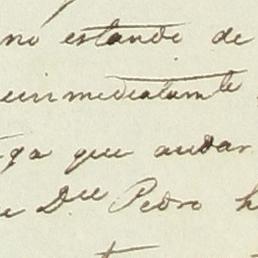 no estande de
inmediatamte
ga que andar
e Dn Pedro h